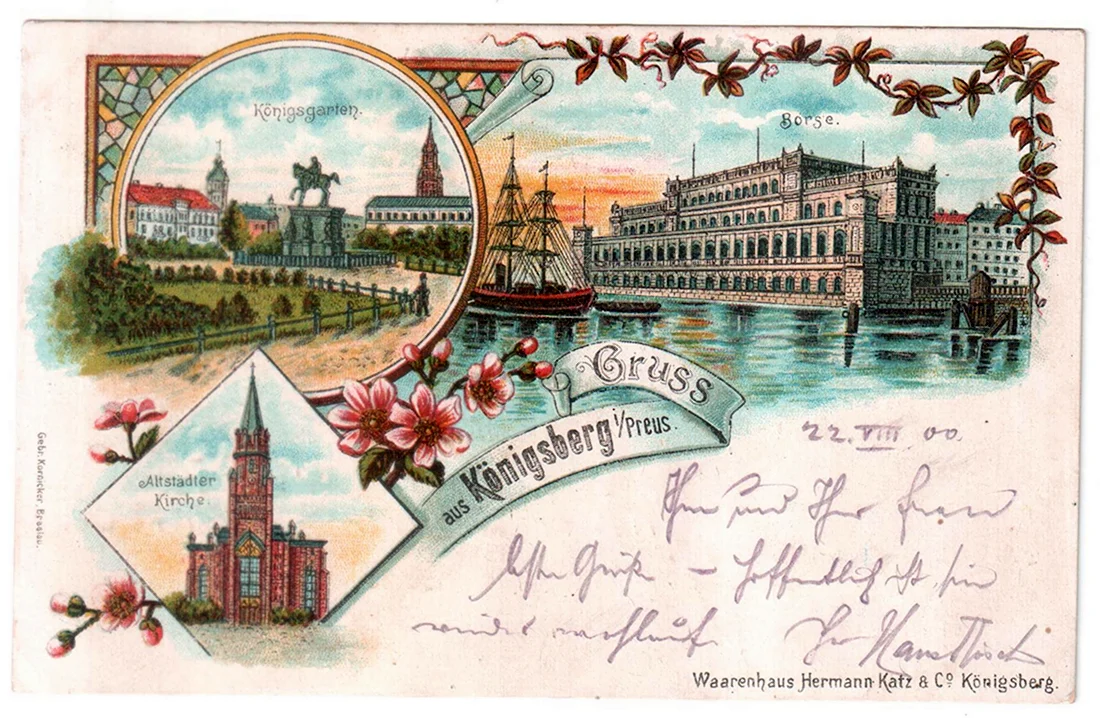 Königsgarten.
Börse.
Gruss
aus Königsberg i/Preus.
Altstädter
Kirche.
Gebr. Kornicker, Breslau.
22. VIII 00.
Ihnen und Ihrer Frau
beste Grüße. – Hoffentlich ist sie
wieder wohlauf. Ihr Hans
Waarenhaus Hermann Katz & Cº Königsberg.